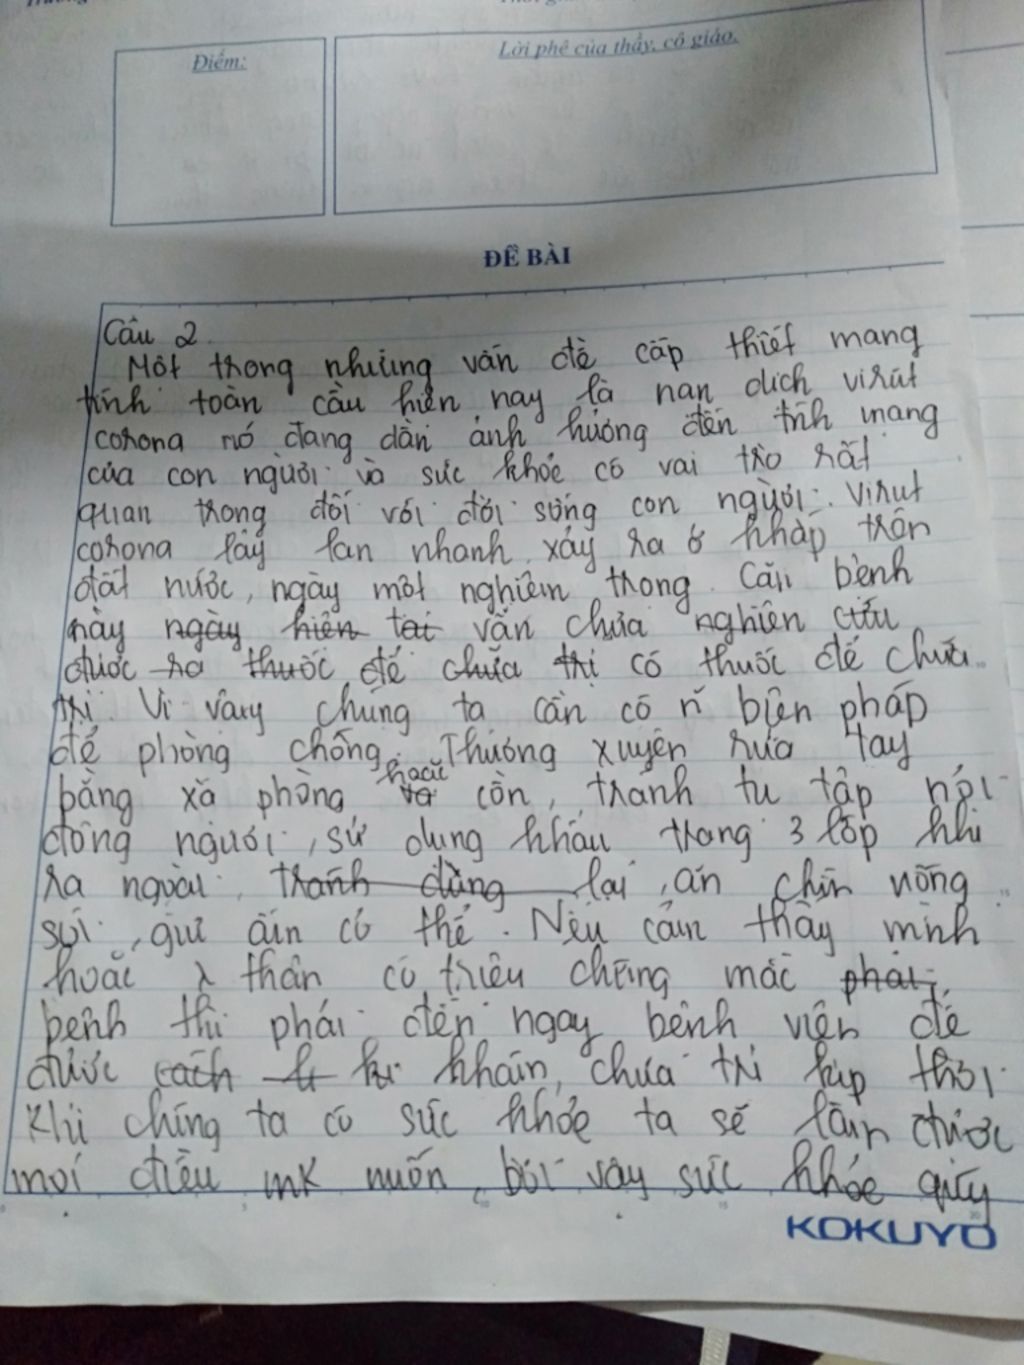 Điểm:
Lời phê của thầy, cô giáo.
ĐỀ BÀI
Câu 2.
Một trong những vấn đề cấp thiết mang
tính toàn cầu hiện nay là nạn dịch virút
corona nó đang dần ảnh hưởng đến tính mạng
của con người và sức khỏe có vai trò rất
quan trọng đối với đời sống con người. Virut
corona lây lan nhanh, xảy ra ở khắp trên
đất nước, ngày một nghiêm trọng. Căn bệnh
này ngày hiện tại vẫn chưa nghiên cứu
được ra thuốc để chữa trị có thuốc để chữa
trị. Vì vậy chúng ta cần có n biện pháp
để phòng chống. Thường xuyên rửa tay
hoặc
bằng xà phòng và cồn, tránh tụ tập nơi
đông người, sử dụng khẩu trang 3 lớp khi
ra ngoài, tránh dùng lại, ăn chín uống
sôi, giữ ấm cơ thể. Nếu cảm thấy mình
hoặc thân có triệu chứng mắc phải
bệnh thì phải đến ngay bệnh viện để
được cách khám, chữa trị kịp thời.
Khi chúng ta có sức khỏe ta sẽ làm được
mọi điều mk muốn, bởi vậy sức khỏe quý
KOKUYO